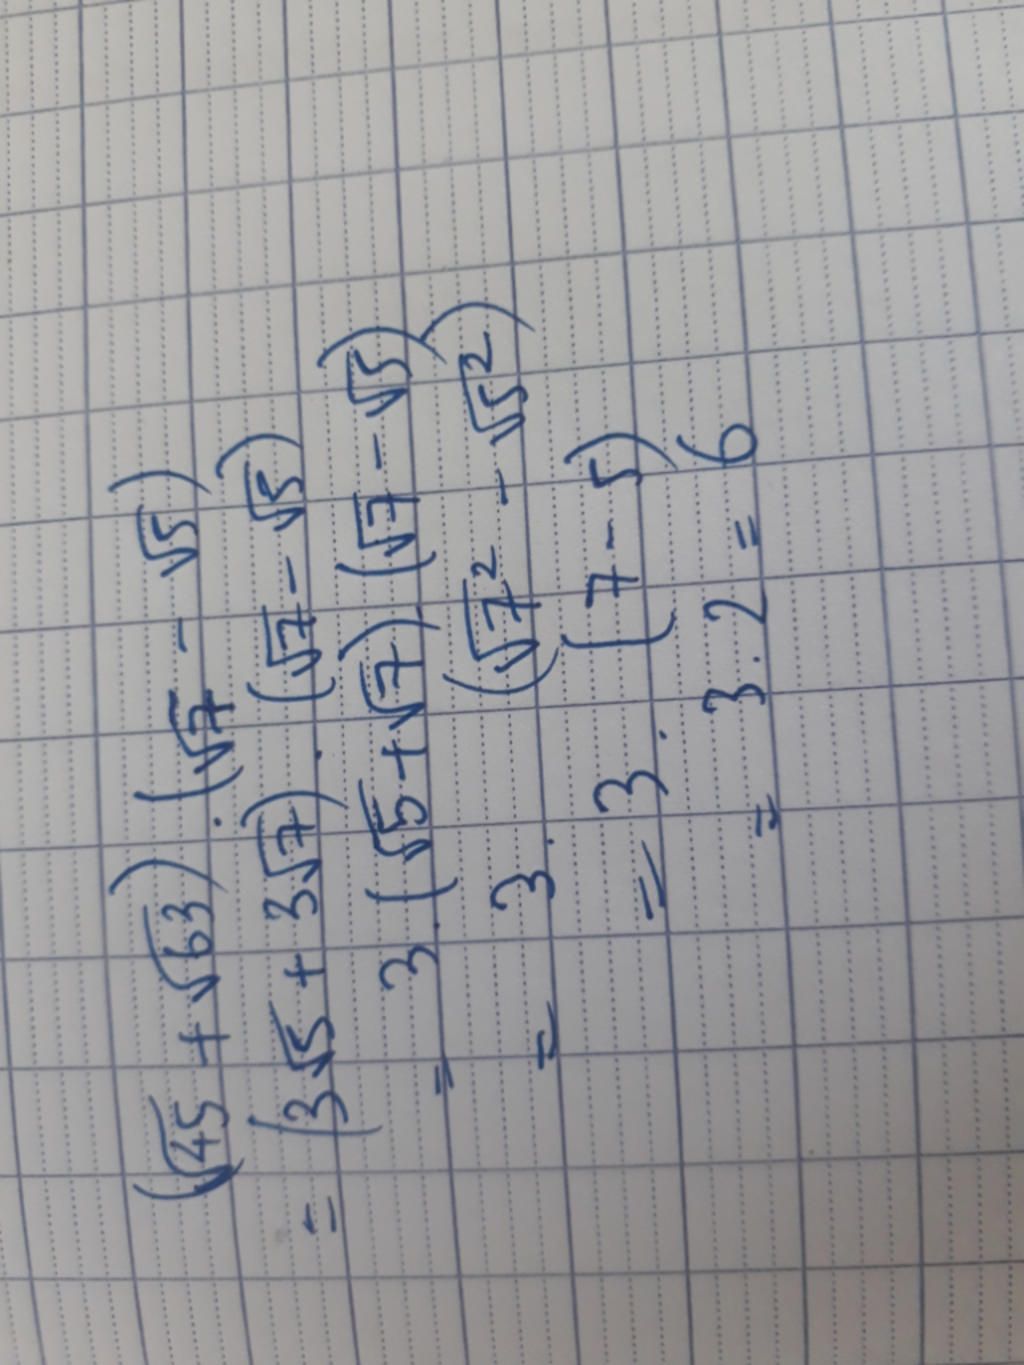 (√45 + √63) . (√7 - √5)
= (3√5 + 3√7) . (√7 - √5)
= 3 . (√5 + √7) (√7 - √5)
= 3 . (√7² - √5²)
= 3 . (7 - 5)
= 3 . 2 = 6